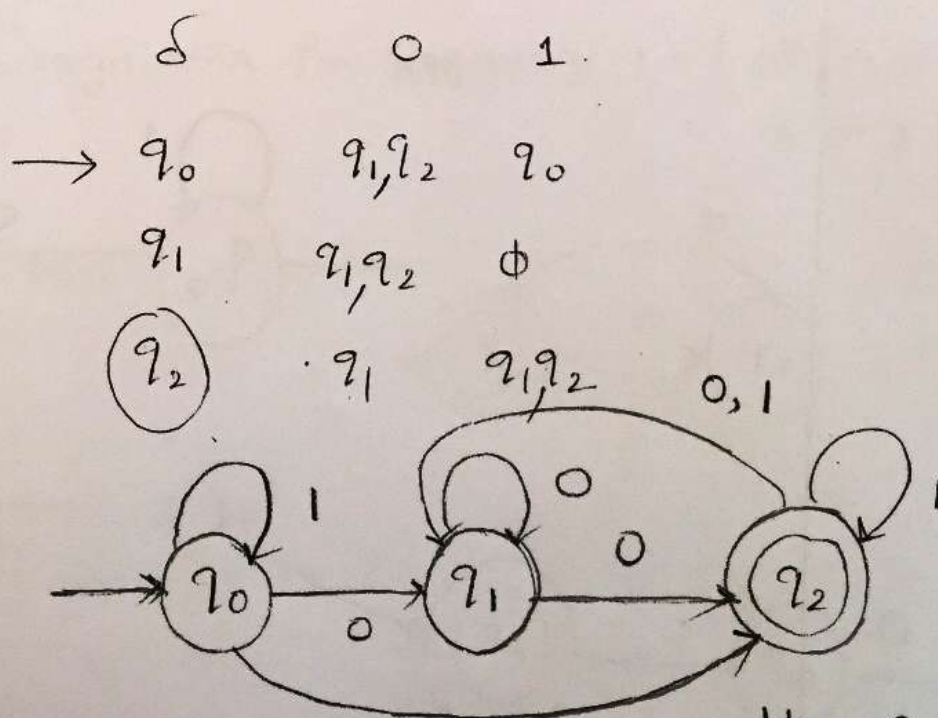 δ 0 1.
→ q₀ q₁,q₂ q₀
q₁ q₁,q₂ ϕ
q₂ q₁ q₁,q₂
0, 1
1 0 1
0
q₀ 0 q₁ q₂